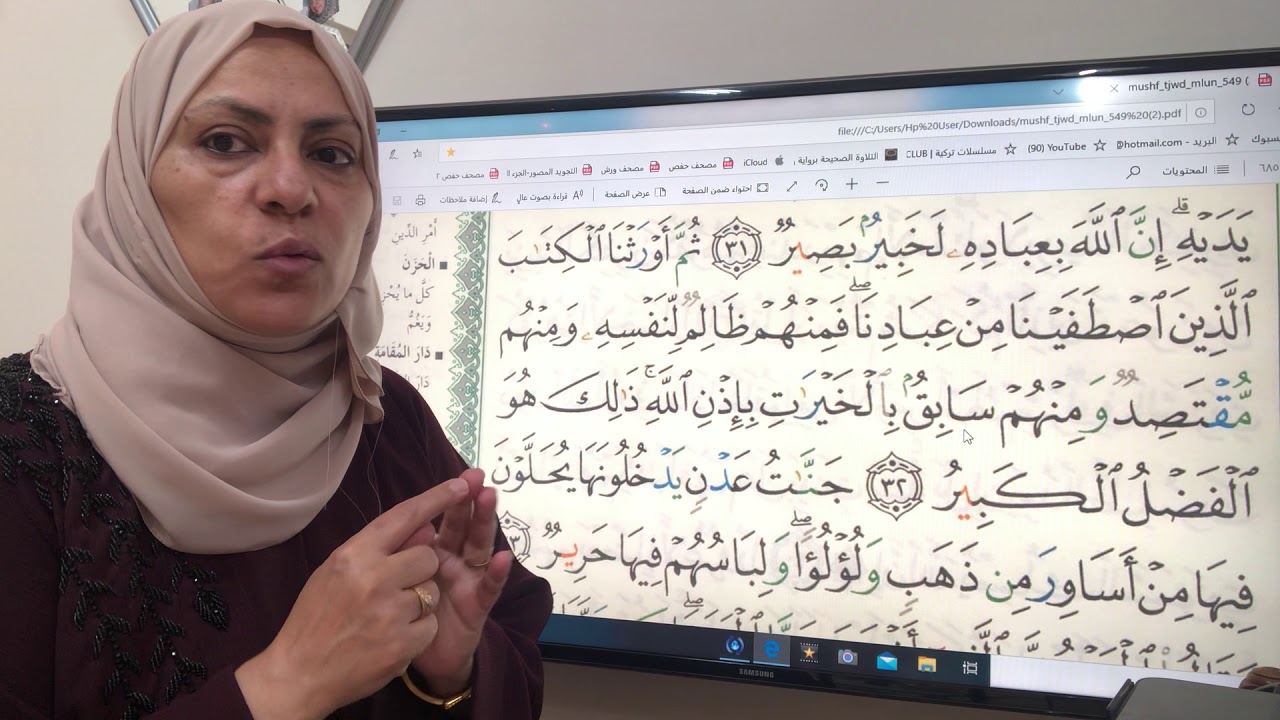 mushf_tjwd_mlun_549 (
file:///C:/Users/Hp%20User/Downloads/mushf_tjwd_mlun_549%20(2).pdf
البريد - @hotmail.com
YouTube (90)
مسلسلات تركية | CLUB
التلاوة الصحيحة برواية
iCloud
مصحف حفص
مصحف ورش
التجويد المصور-الجزء ال
مصحف حفص ٢
٦٨٥
المحتويات
احتواء ضمن الصفحة
عرض الصفحة
قراءة بصوت عالي
إضافة ملاحظات
يَدَيْهِ ۗ إِنَّ ٱللَّهَ بِعِبَادِهِۦ لَخَبِيرٌۢ بَصِيرٌ ٣١ ثُمَّ أَوْرَثْنَا ٱلْكِتَٰبَ
ٱلَّذِينَ ٱصْطَفَيْنَا مِنْ عِبَادِنَا ۖ فَمِنْهُمْ ظَالِمٌ لِّنَفْسِهِۦ وَمِنْهُم
مُّقْتَصِدٌ وَمِنْهُمْ سَابِقٌۢ بِٱلْخَيْرَٰتِ بِإِذْنِ ٱللَّهِ ۚ ذَٰلِكَ هُوَ
ٱلْفَضْلُ ٱلْكَبِيرُ ٣٢ جَنَّٰتُ عَدْنٍ يَدْخُلُونَهَا يُحَلَّوْنَ
فِيهَا مِنْ أَسَاوِرَ مِن ذَهَبٍ وَلُؤْلُؤًا ۖ وَلِبَاسُهُمْ فِيهَا حَرِيرٌ
أَمْرِ الدِّينِ
الْحَزَنَ
كُلَّ ما يُحْزِ
وَيَغُمُّ
دَارَ الْمُقَامَةِ
دَارَ
SAMSUNG